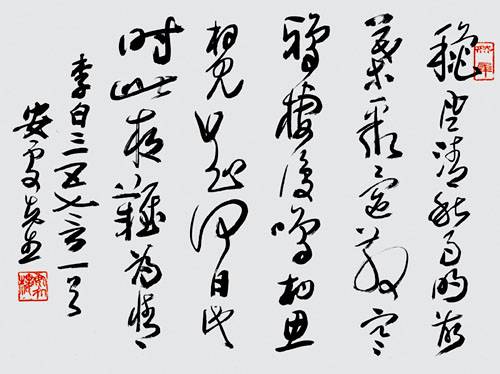 穐風清秋月明落
葉聚還散寒
鴉棲復相思
相見知何日此
時此夜難為情
李白三五七言一首